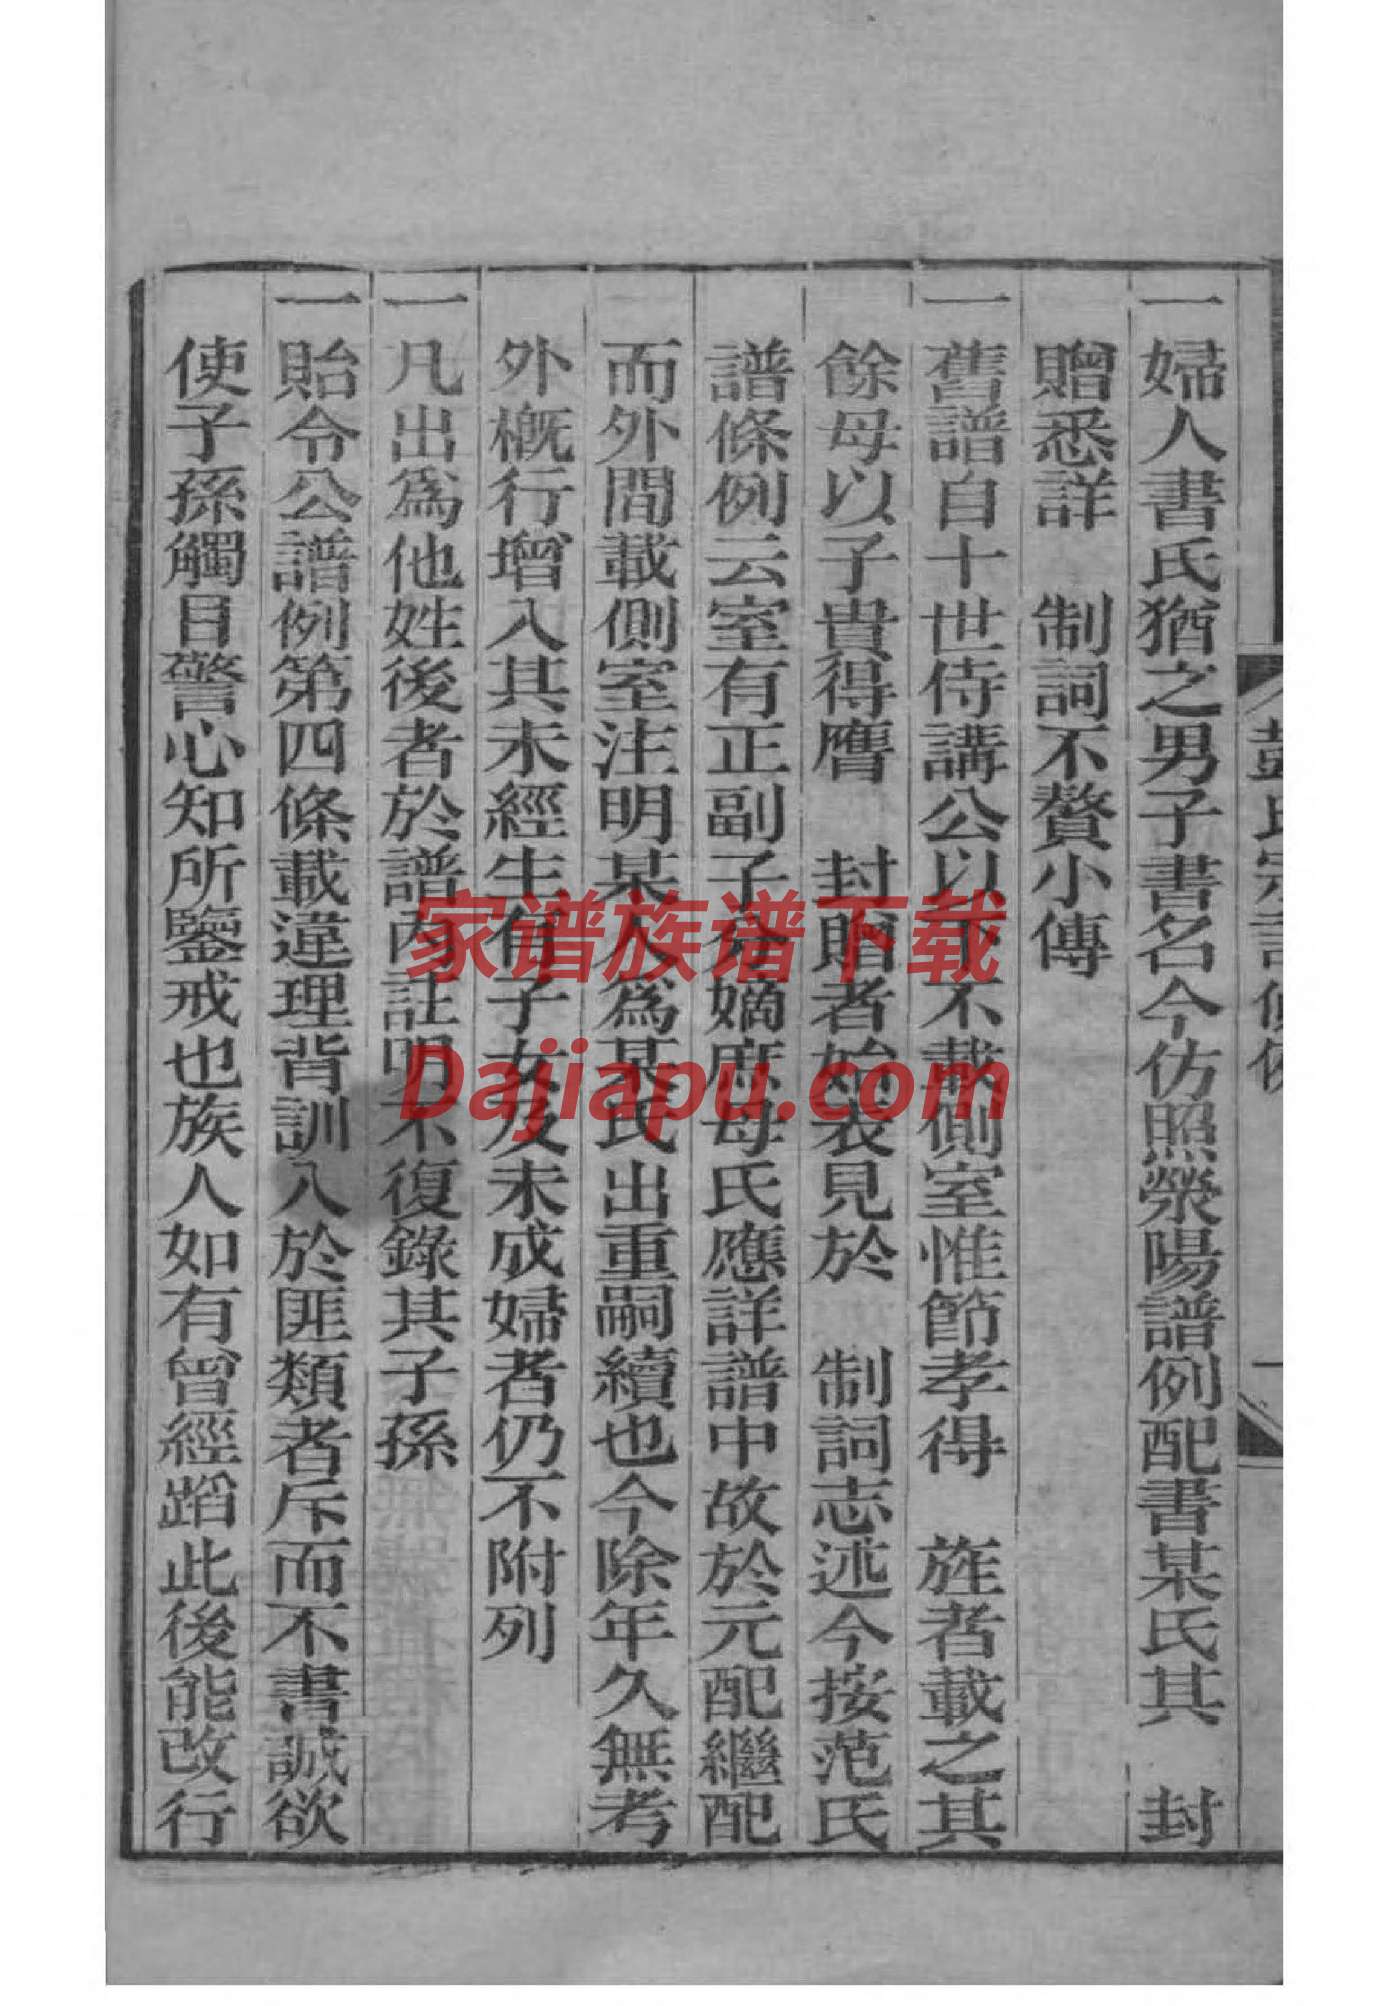 一婦人書氏猶之男子書名今仿照滎陽譜例配書某氏其　封
贈悉詳　制詞不贅小傳
一舊譜自十世侍講公以下不載側室惟節孝得　旌者載之其
餘母以子貴得膺　封贈者始表見於　制詞志述今按范氏
譜條例云室有正副子分嫡庶母氏應詳譜中故於元配繼配
而外間載側室注明某人為某氏出重嗣續也今除年久無考
外概行增入其未經生有子女及未成婦者仍不附列
一凡出為他姓後者於譜內註明不復錄其子孫
一貽令公譜例第四條載違理背訓入於匪類者斥而不書誠欲
使子孫觸目警心知所鑒戒也族人如有曾經蹈此後能改行
家谱族谱下载
Dajiapu.com